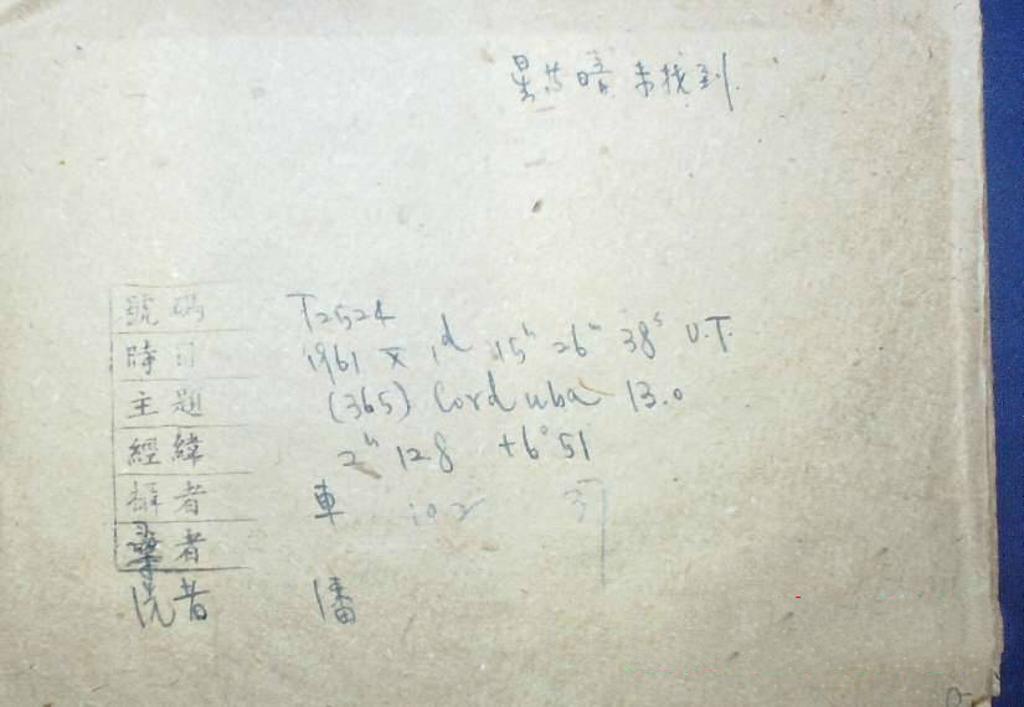 星太暗 未找到
號碼 T2524
時日 1961 X 1d 15h 26m 38s U.T.
主題 (365) Corduba 13.0
經緯 2h 12.8 +6°51
攝者 車
者
洗者 潘